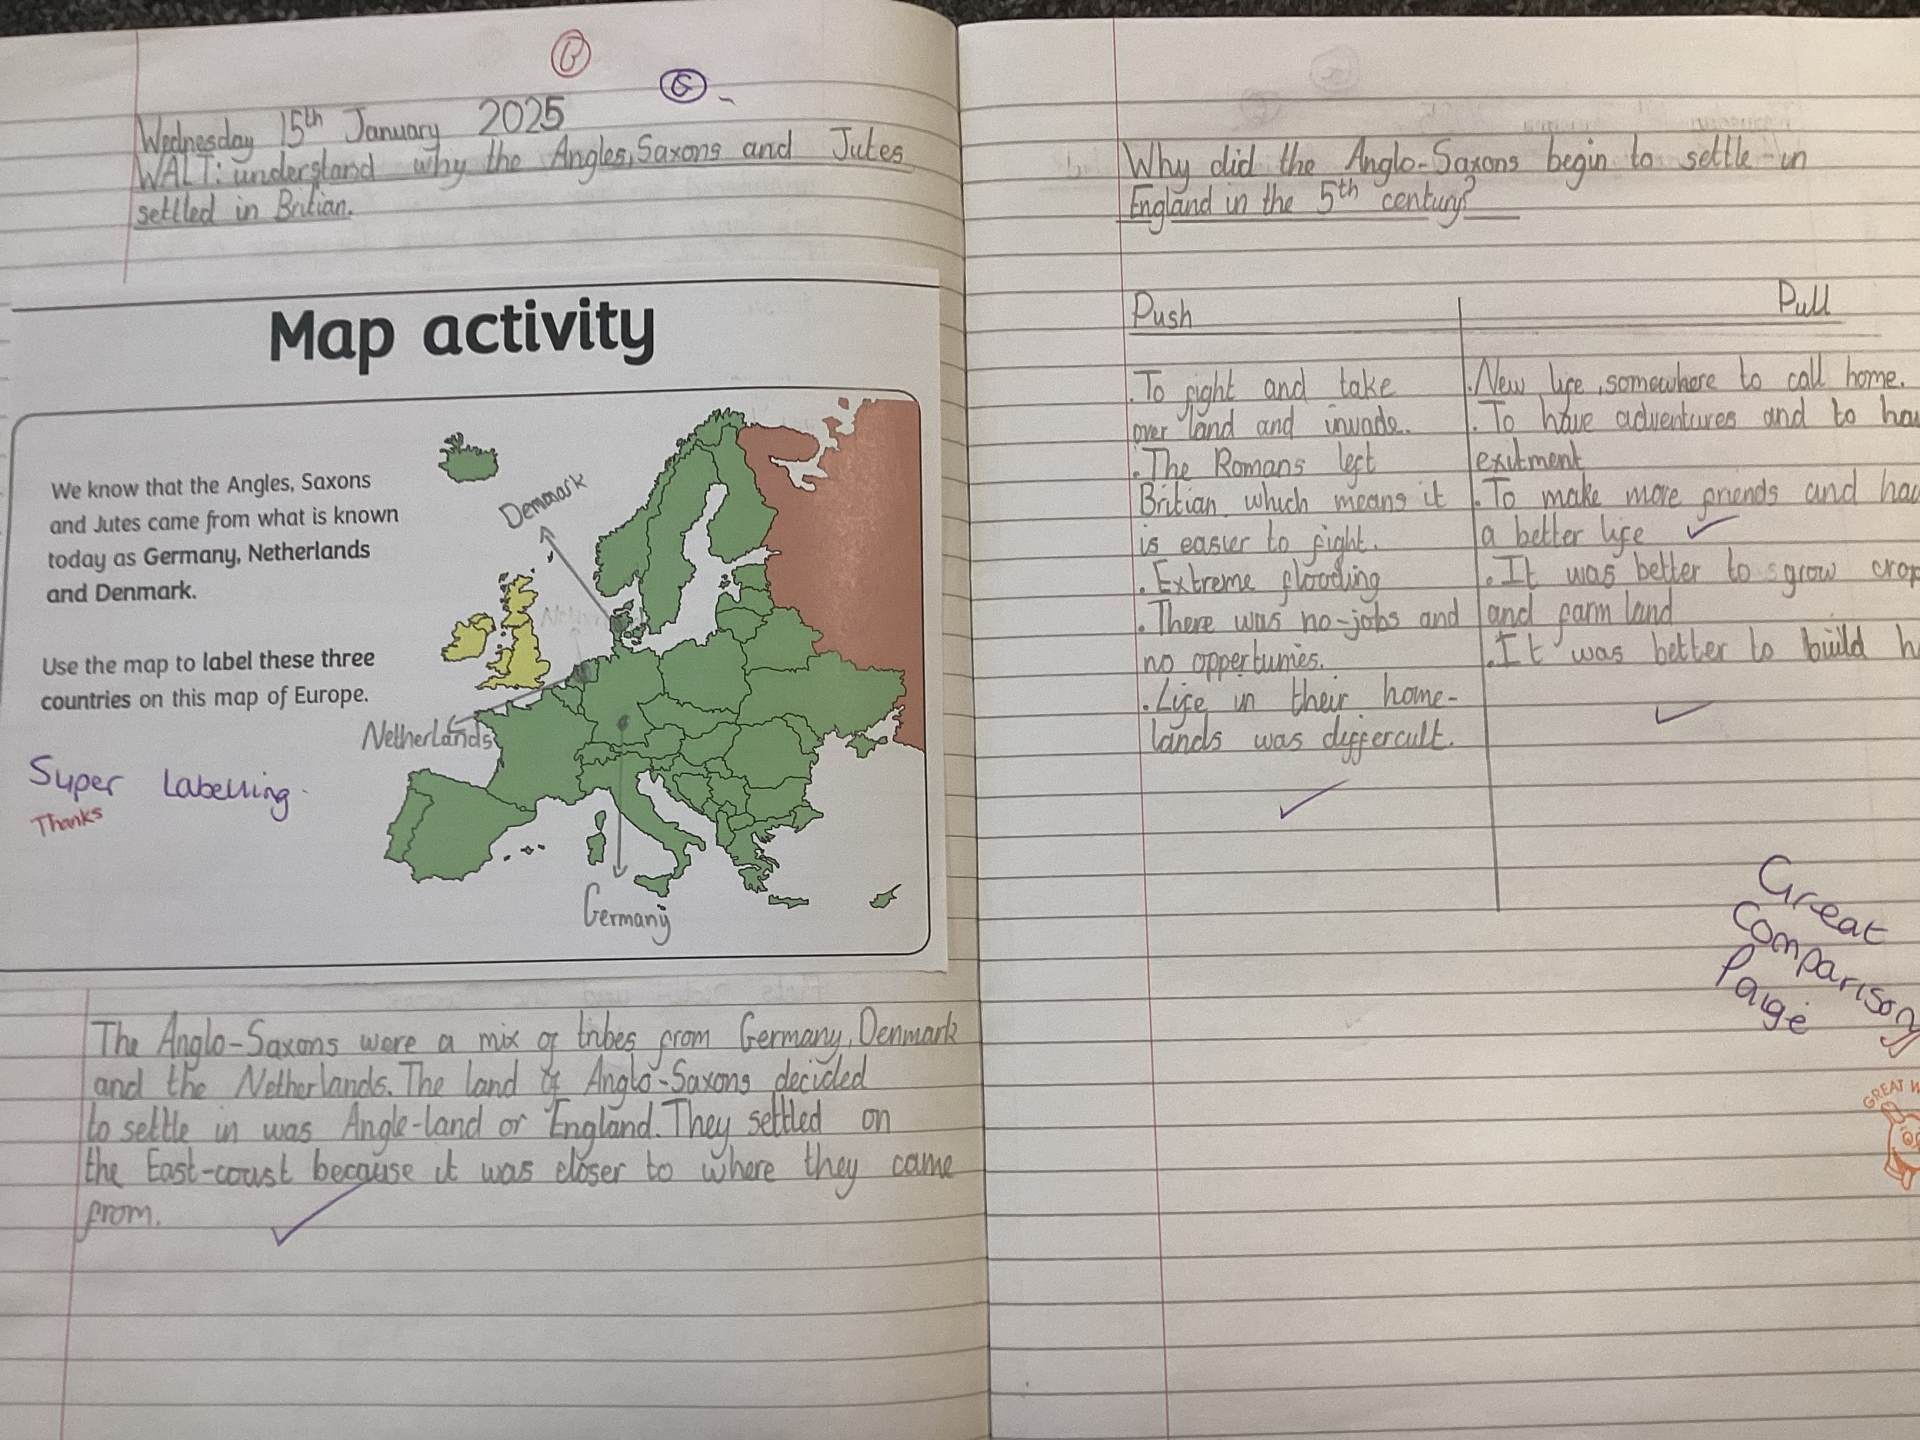 Wednesday 15th January 2025
WALT: understand why the Angles, Saxons and Jutes
settled in Britian.
Map activity
We know that the Angles, Saxons
and Jutes came from what is known
today as Germany, Netherlands
and Denmark.
Use the map to label these three
countries on this map of Europe.
Denmark
Netherlands
Germany
Super Labelling.
Thanks
The Anglo-Saxons were a mix of tribes from Germany, Denmark
and the Netherlands. The land of Anglo-Saxons decided
to settle in was Angle-land or England. They settled on
the East-coast because it was closer to where they came
from.
Why did the Anglo-Saxons begin to settle in
England in the 5th century?
Push
. To fight and take
over land and invade.
. The Romans left
Britian which means it
is easier to fight.
. Extreme flooding
. There was no-jobs and
no oppertunies.
. Life in their home-
lands was differcult.
Pull
. New life, somewhere to call home.
. To have adventures and to
exitment
. To make more friends and
a better life
. It was better to grow
and farm land
. It was better to build
Great
comparison
Paige
GREAT